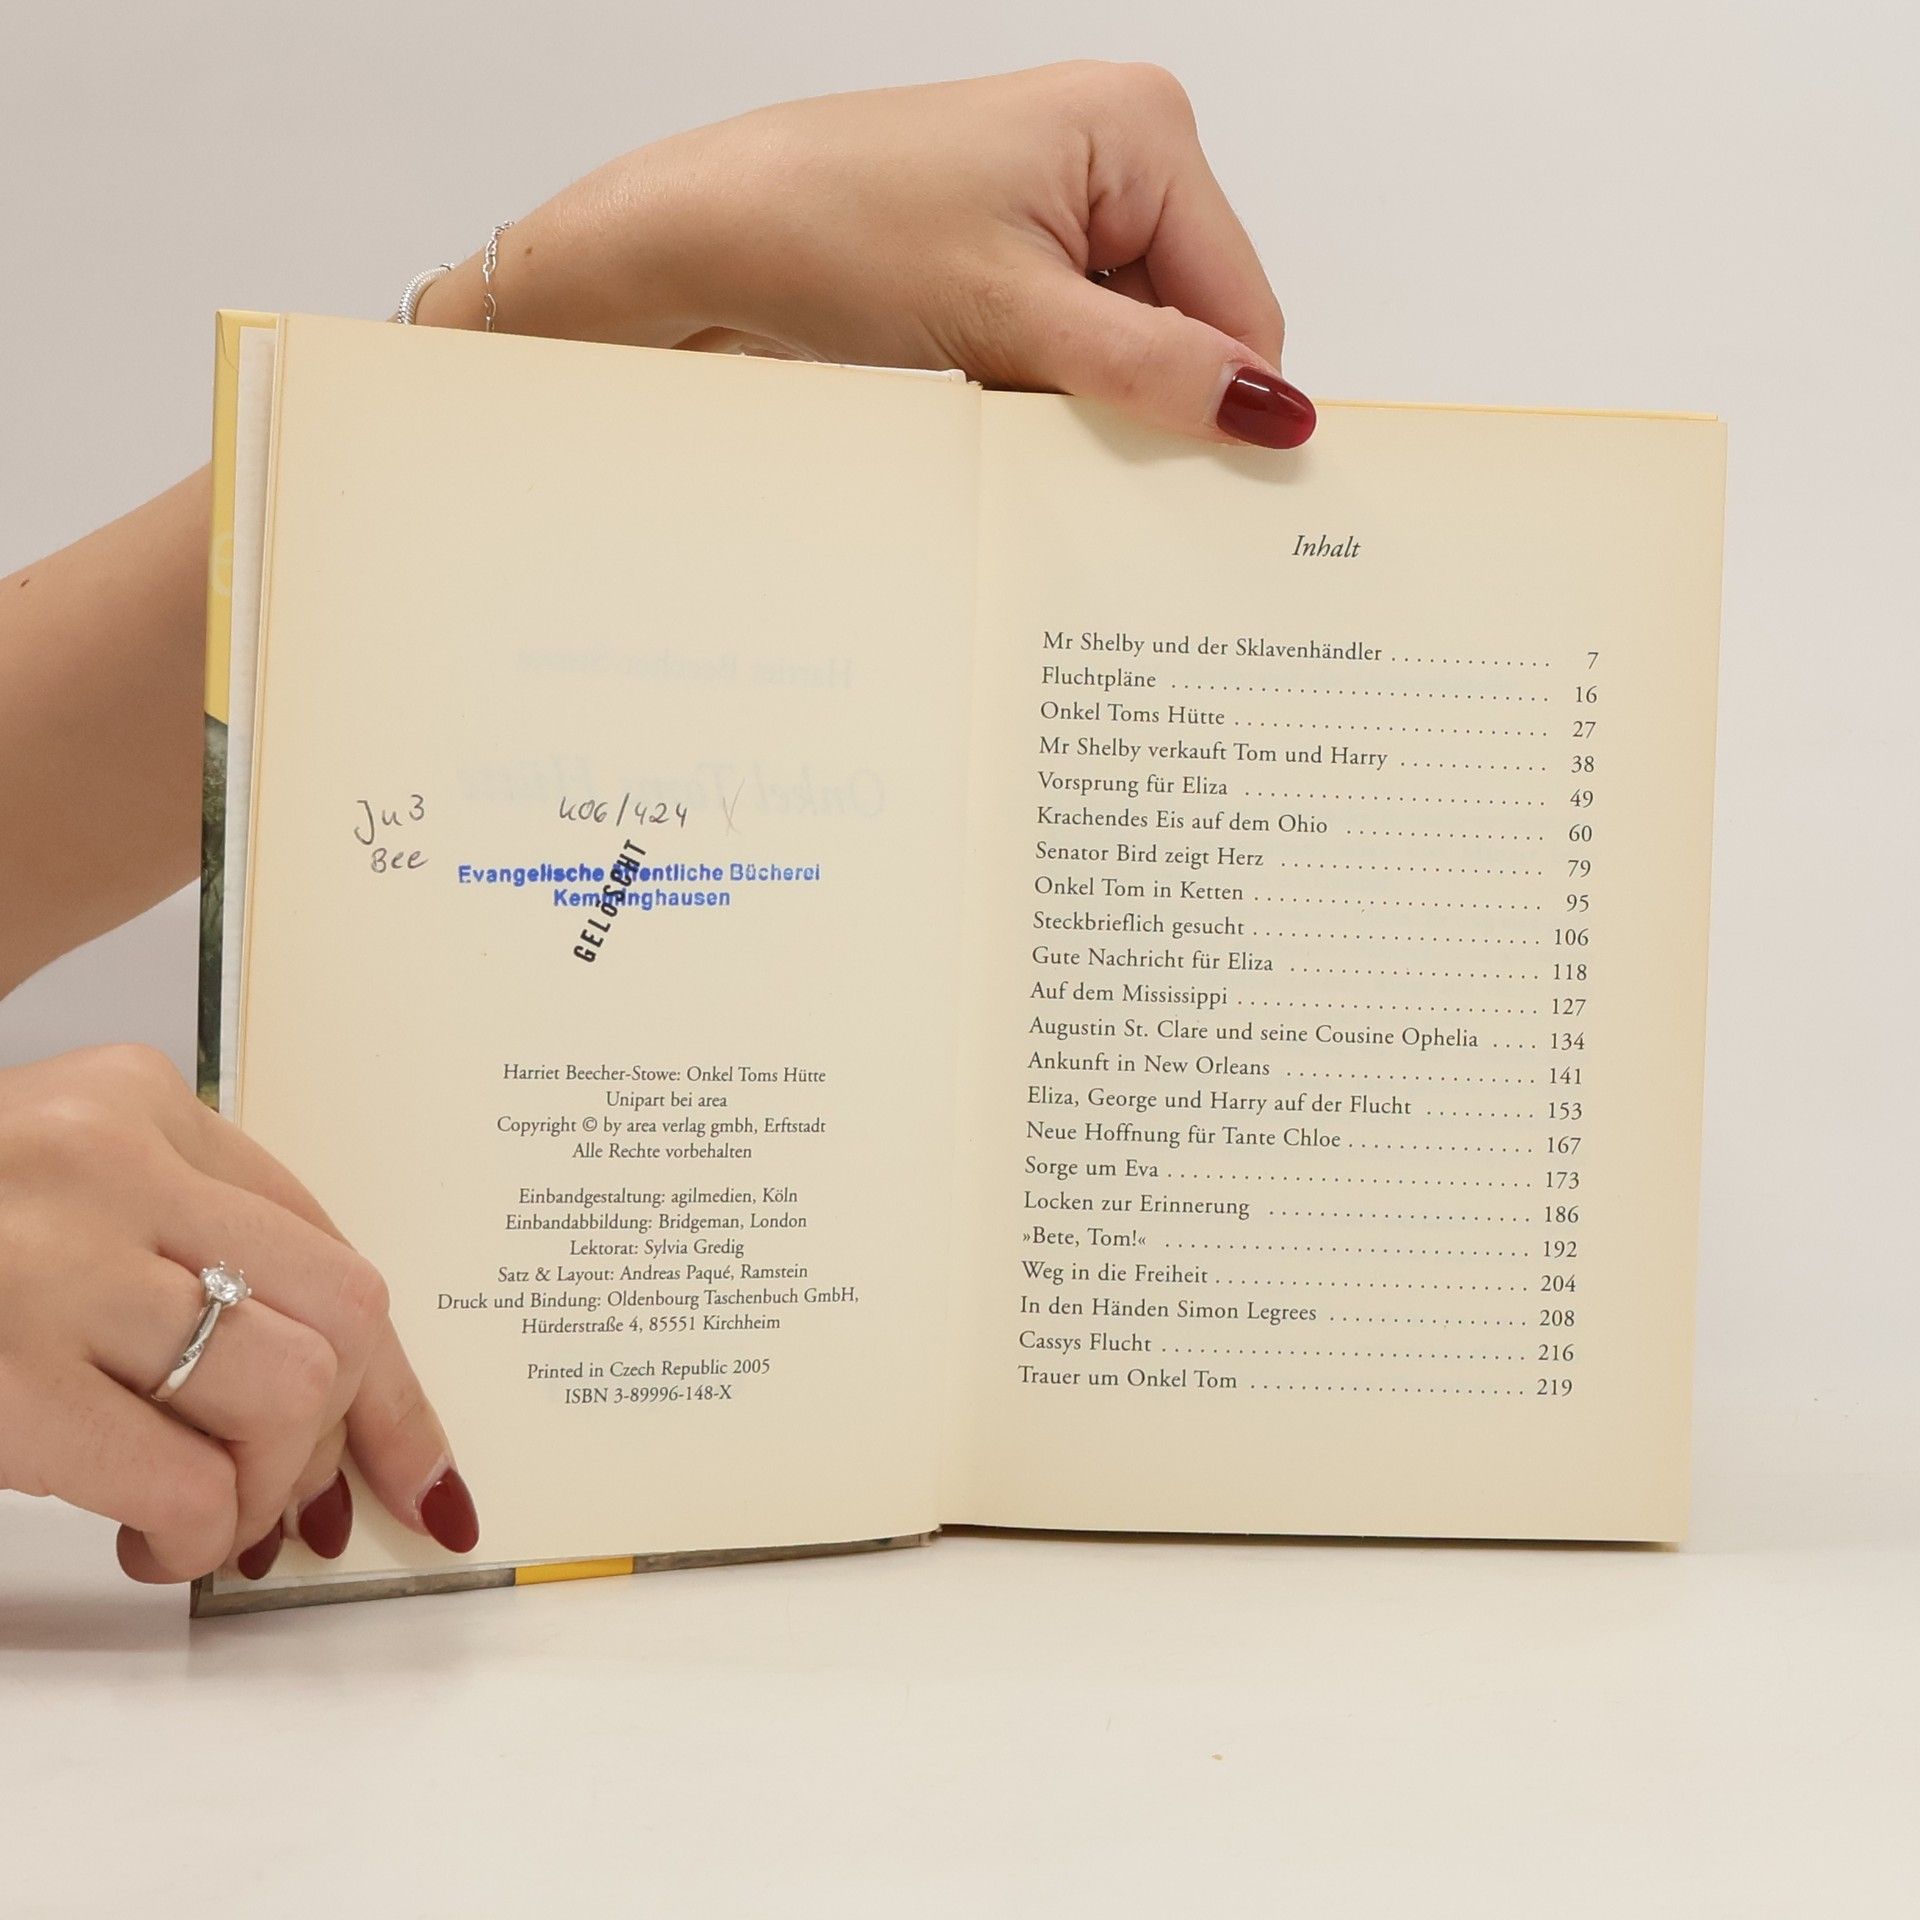 Ju3
Bee
K06/424
Evangelische öffentliche Bücherei
Kemminghausen
GELÖSCHT
Harriet Beecher-Stowe: Onkel Toms Hütte
Unipart bei area
Copyright © by area verlag gmbh, Erftstadt
Alle Rechte vorbehalten
Einbandgestaltung: agilmedien, Köln
Einbandabbildung: Bridgeman, London
Lektorat: Sylvia Gredig
Satz & Layout: Andreas Paqué, Ramstein
Druck und Bindung: Oldenbourg Taschenbuch GmbH,
Hürderstraße 4, 85551 Kirchheim
Printed in Czech Republic 2005
ISBN 3-89996-148-X
Inhalt
Mr Shelby und der Sklavenhändler ............. 7
Fluchtpläne .............................. 16
Onkel Toms Hütte ......................... 27
Mr Shelby verkauft Tom und Harry ............ 38
Vorsprung für Eliza ........................ 49
Krachendes Eis auf dem Ohio ................ 60
Senator Bird zeigt Herz ..................... 79
Onkel Tom in Ketten ....................... 95
Steckbrieflich gesucht ....................... 106
Gute Nachricht für Eliza .................... 118
Auf dem Mississippi ........................ 127
Augustin St. Clare und seine Cousine Ophelia .... 134
Ankunft in New Orleans .................... 141
Eliza, George und Harry auf der Flucht ......... 153
Neue Hoffnung für Tante Chloe ............... 167
Sorge um Eva ............................. 173
Locken zur Erinnerung ..................... 186
»Bete, Tom!« ............................. 192
Weg in die Freiheit ......................... 204
In den Händen Simon Legrees ................ 208
Cassys Flucht ............................. 216
Trauer um Onkel Tom ...................... 219